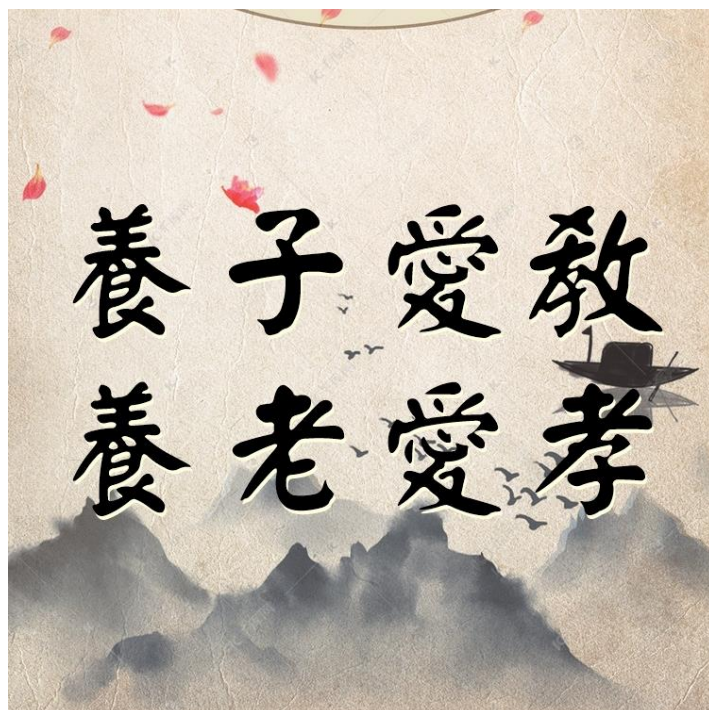 養子愛教
養老愛孝